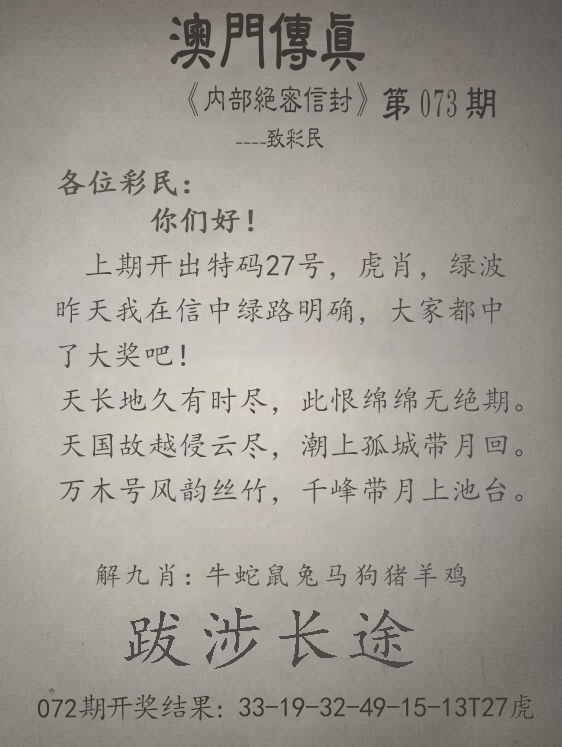 澳門傳眞
《内部絕密信封》第073期
----致彩民
各位彩民：
你们好！
上期开出特码27号，虎肖，绿波
昨天我在信中绿路明确，大家都中
了大奖吧！
天长地久有时尽，此恨绵绵无绝期。
天国故越侵云尽，潮上孤城带月回。
万木号风韵丝竹，千峰带月上池台。
解九肖：牛蛇鼠兔马狗猪羊鸡
跋涉长途
072期开奖结果：33-19-32-49-15-13T27虎